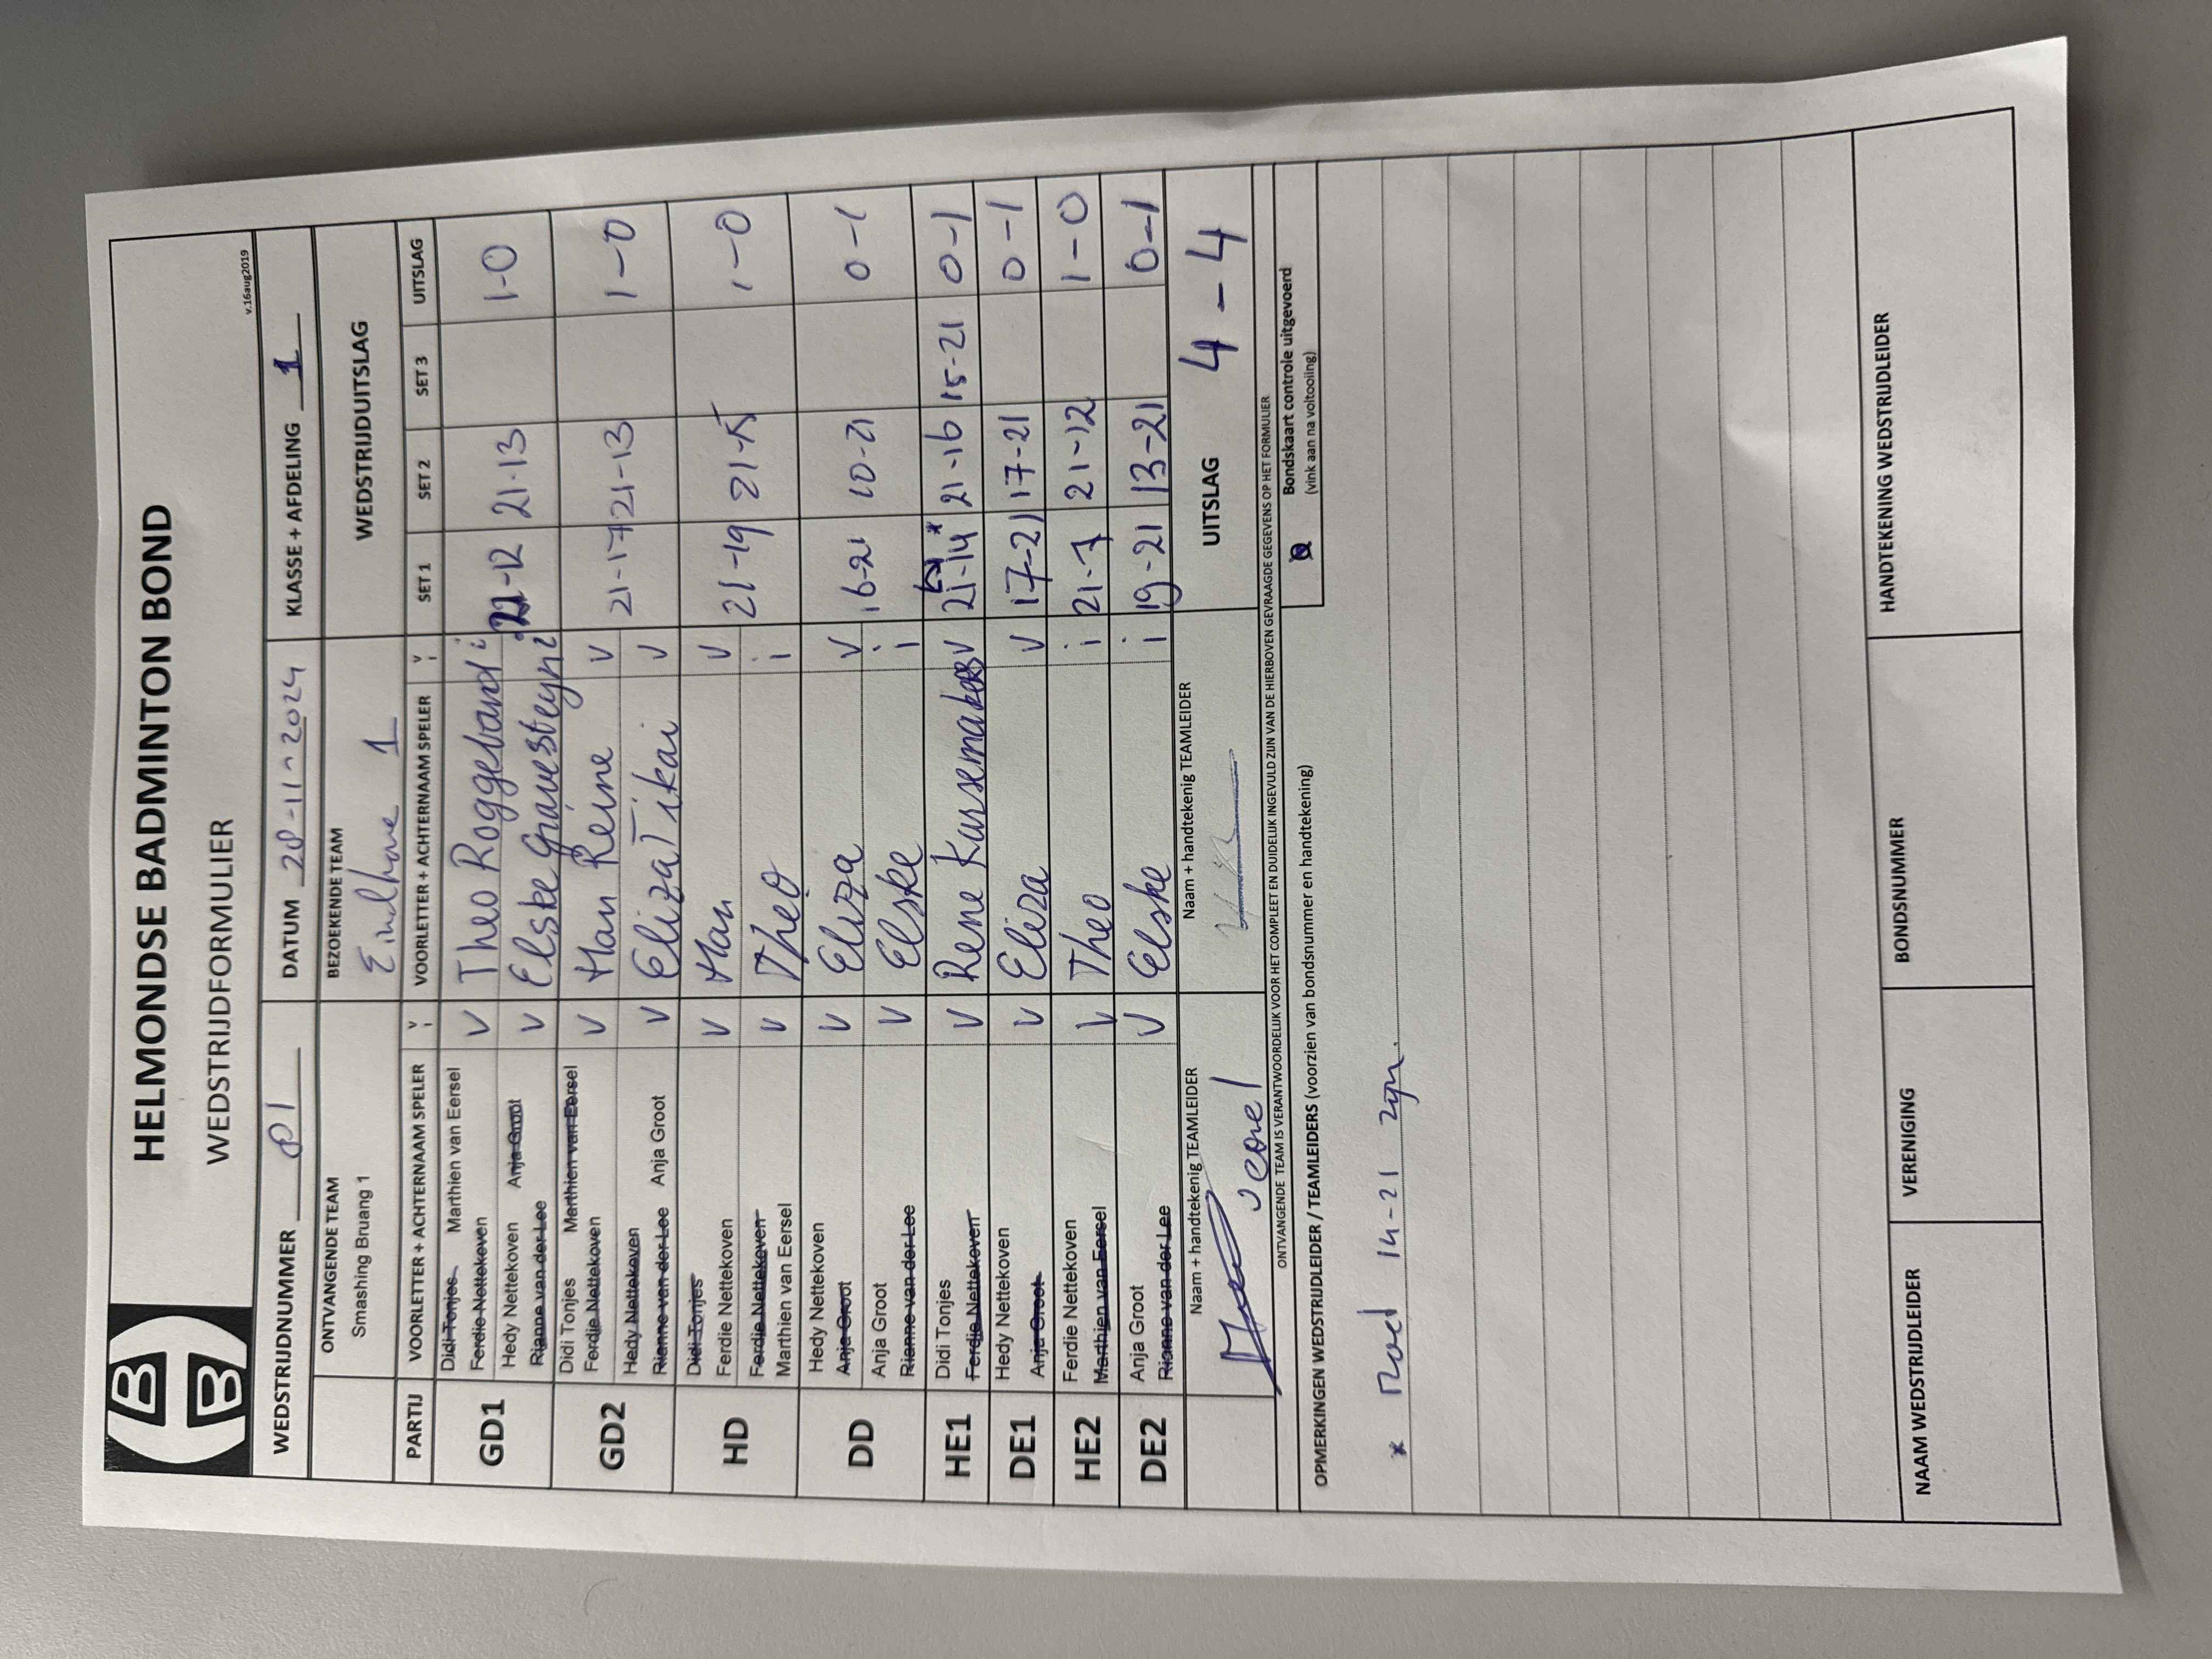 HELMONDSE BADMINTON BOND
WEDSTRIJDFORMULIER
v.16aug2019
WEDSTRIJDNUMMER 81 DATUM 28-11-2024 KLASSE + AFDELING 1
ONTVANGENDE TEAM BEZOEKENDE TEAM WEDSTRIJDUITSLAG
Smashing Bruang 1 1
PARTIJ VOORLETTER + ACHTERNAAM SPELER V i VOORLETTER + ACHTERNAAM SPELER V i SET 1 SET 2 SET 3 UITSLAG
GD1
Didi Tonjes Marthien van Eersel V Theo Roggeband i
Ferdie Nettekoven
21-12 21-13 1-0
Hedy Nettekoven Anja Groot V Elske Gravesteyn i
Rianne van der Lee
GD2
Didi Tonjes Marthien van Eersel V Han Reine V
Ferdie Nettekoven
21-17 21-13 1-0
Hedy Nettekoven V Eliza Tikai V
Rianne van der Lee Anja Groot
HD
Didi Tonjes
Ferdie Nettekoven V Han V
21-19 21-15 1-0
Ferdie Nettekoven V Theo i
Marthien van Eersel
DD
Hedy Nettekoven V Eliza V
Anja Groot
16-21 10-21 0-1
Anja Groot V Elske i
Rianne van der Lee
HE1 Didi Tonjes V Rene Kursemakers V 21-14 * 21-16 15-21 0-1
Ferdie Nettekoven
DE1 Hedy Nettekoven V Eliza V 17-21 17-21 0-1
Anja Groot
HE2 Ferdie Nettekoven V Theo i 21-7 21-12 1-0
Marthien van Eersel
DE2 Anja Groot V Elske i 19-21 13-21 0-1
Rianne van der Lee
Naam + handtekenig TEAMLEIDER Naam + handtekenig TEAMLEIDER UITSLAG 4-4
ONTVANGENDE TEAM IS VERANTWOORDELIJK VOOR HET COMPLEET EN DUIDELIJK INGEVULD ZIJN VAN DE HIERBOVEN GEVRAAGDE GEGEVENS OP HET FORMULIER
OPMERKINGEN WEDSTRIJDLEIDER / TEAMLEIDERS (voorzien van bondsnummer en handtekening)
Bondskaart controle uitgevoerd
(vink aan na voltooiing)
* Moet 14-21 zijn.
NAAM WEDSTRIJDLEIDER VERENIGING BONDSNUMMER HANDTEKENING WEDSTRIJDLEIDER